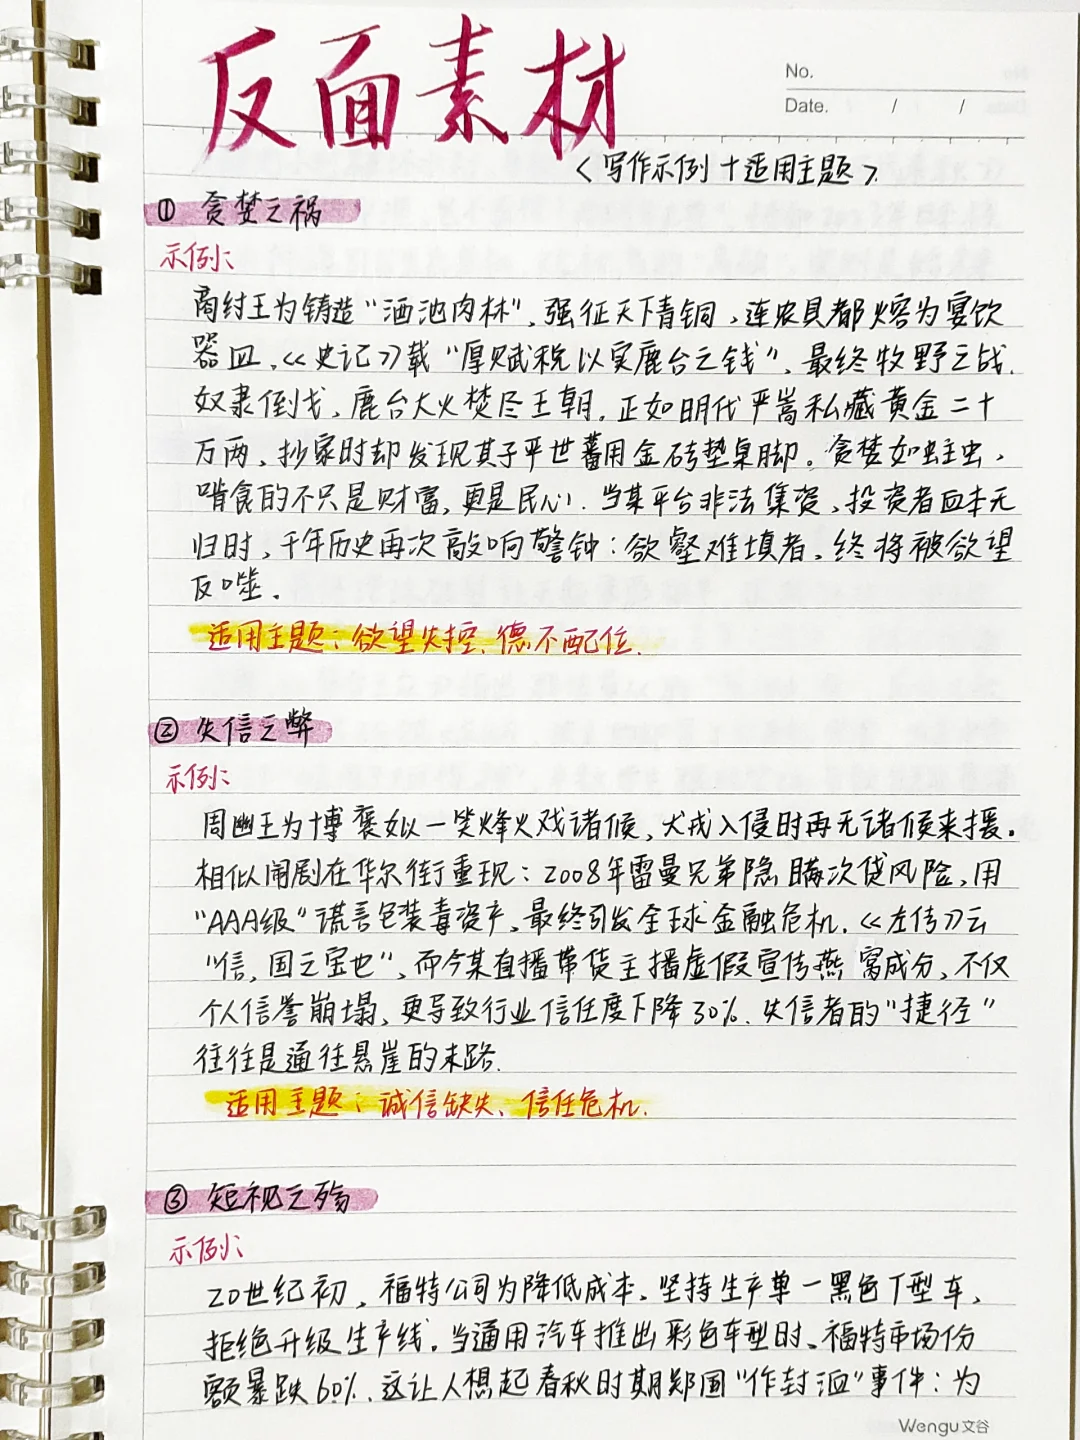 反面素材
No.
Date. / /
<写作示例+适用主题>
① 贪婪之祸
示例:
商纣王为铸造"酒池肉林"、强征天下青铜,连农具都熔为宴饮
器皿.《史记》载"厚赋税以实鹿台之钱"、最终牧野之战.
奴隶倒戈、鹿台大火焚尽王朝.正如明代严嵩私藏黄金二十
万两、抄家时却发现其子严世蕃用金砖垫桌脚。贪婪如蛀虫,
啃食的不只是财富,更是民心.当某平台非法集资,投资者血本无
归时,千年历史再次敲响警钟:欲壑难填者、终将被欲望
反噬.
适用主题:欲望失控、德不配位.
② 失信之弊
示例:
周幽王为博褒姒一笑烽火戏诸侯,犬戎入侵时再无诸侯来援.
相似闹剧在华尔街重现:2008年雷曼兄弟隐瞒次贷风险,用
"AAA级"谎言包装毒资产,最终引发全球金融危机.《左传》云
"信,国之宝也",而今某直播带货主播虚假宣传燕窝成分,不仅
个人信誉崩塌,更导致行业信任度下降30%.失信者的"捷径"
往往是通往悬崖的末路.
适用主题:诚信缺失、信任危机.
③ 短视之殇
示例:
20世纪初,福特公司为降低成本、坚持生产单一黑色T型车、
拒绝升级生产线.当通用汽车推出彩色车型时、福特市场份
额暴跌60%.这让人想起春秋时期郑国"作封洫"事件:为
Wengu文谷